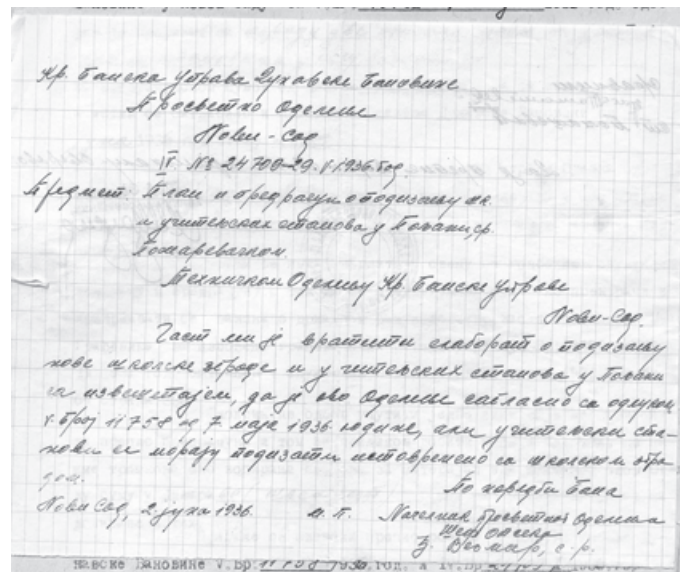 Кр. Банска Управа Дунавске Бановине
Просветно Оделење
Нови-Сад
IV № 24700-29.V.1936 год.
Предмет: План и предрачун о подизању шк.
и учитељских станова у Пољани, ср.
Пожаревачком.
Техничком Оделењу Кр. Банске Управе
Нови-Сад.
Част ми је вратити елаборат о подизању
нове школске зграде и учитељских станова у Пољани
са извештајем, да је ово Оделење сагласно са одлуком
V. број 11758 од 7 маја 1936. године, али учитељски ста-
нови се морају подизати истовремено са школском згра-
дом.
По наредби Бана
Нови Сад, 2. јуна 1936. м. п. Начелник Просветног Оделења
Шеф Отсека
с. р.
навске Бановине V.Бр. 11758 1936.год. а IV.Бр.